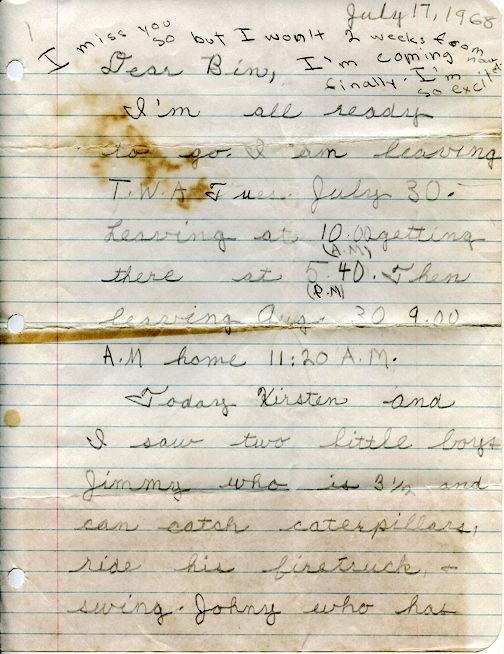 July 17, 1968
I miss you so but I won't 2 weeks from now
Dear Bin, I'm coming
finally. I'm so excited
I'm all ready
to go. I am leaving
T.W.A Tues. July 30.
Leaving at 10.00 getting
(A.M)
there at 5.40. Then
(P.M)
leaving Aug. 30 9.00
A.M home 11:20 A.M.
Today Kirsten and
I saw two little boys
Jimmy who is 3½ and
can catch caterpillars,
ride his firetruck, +
swing. Johny who has